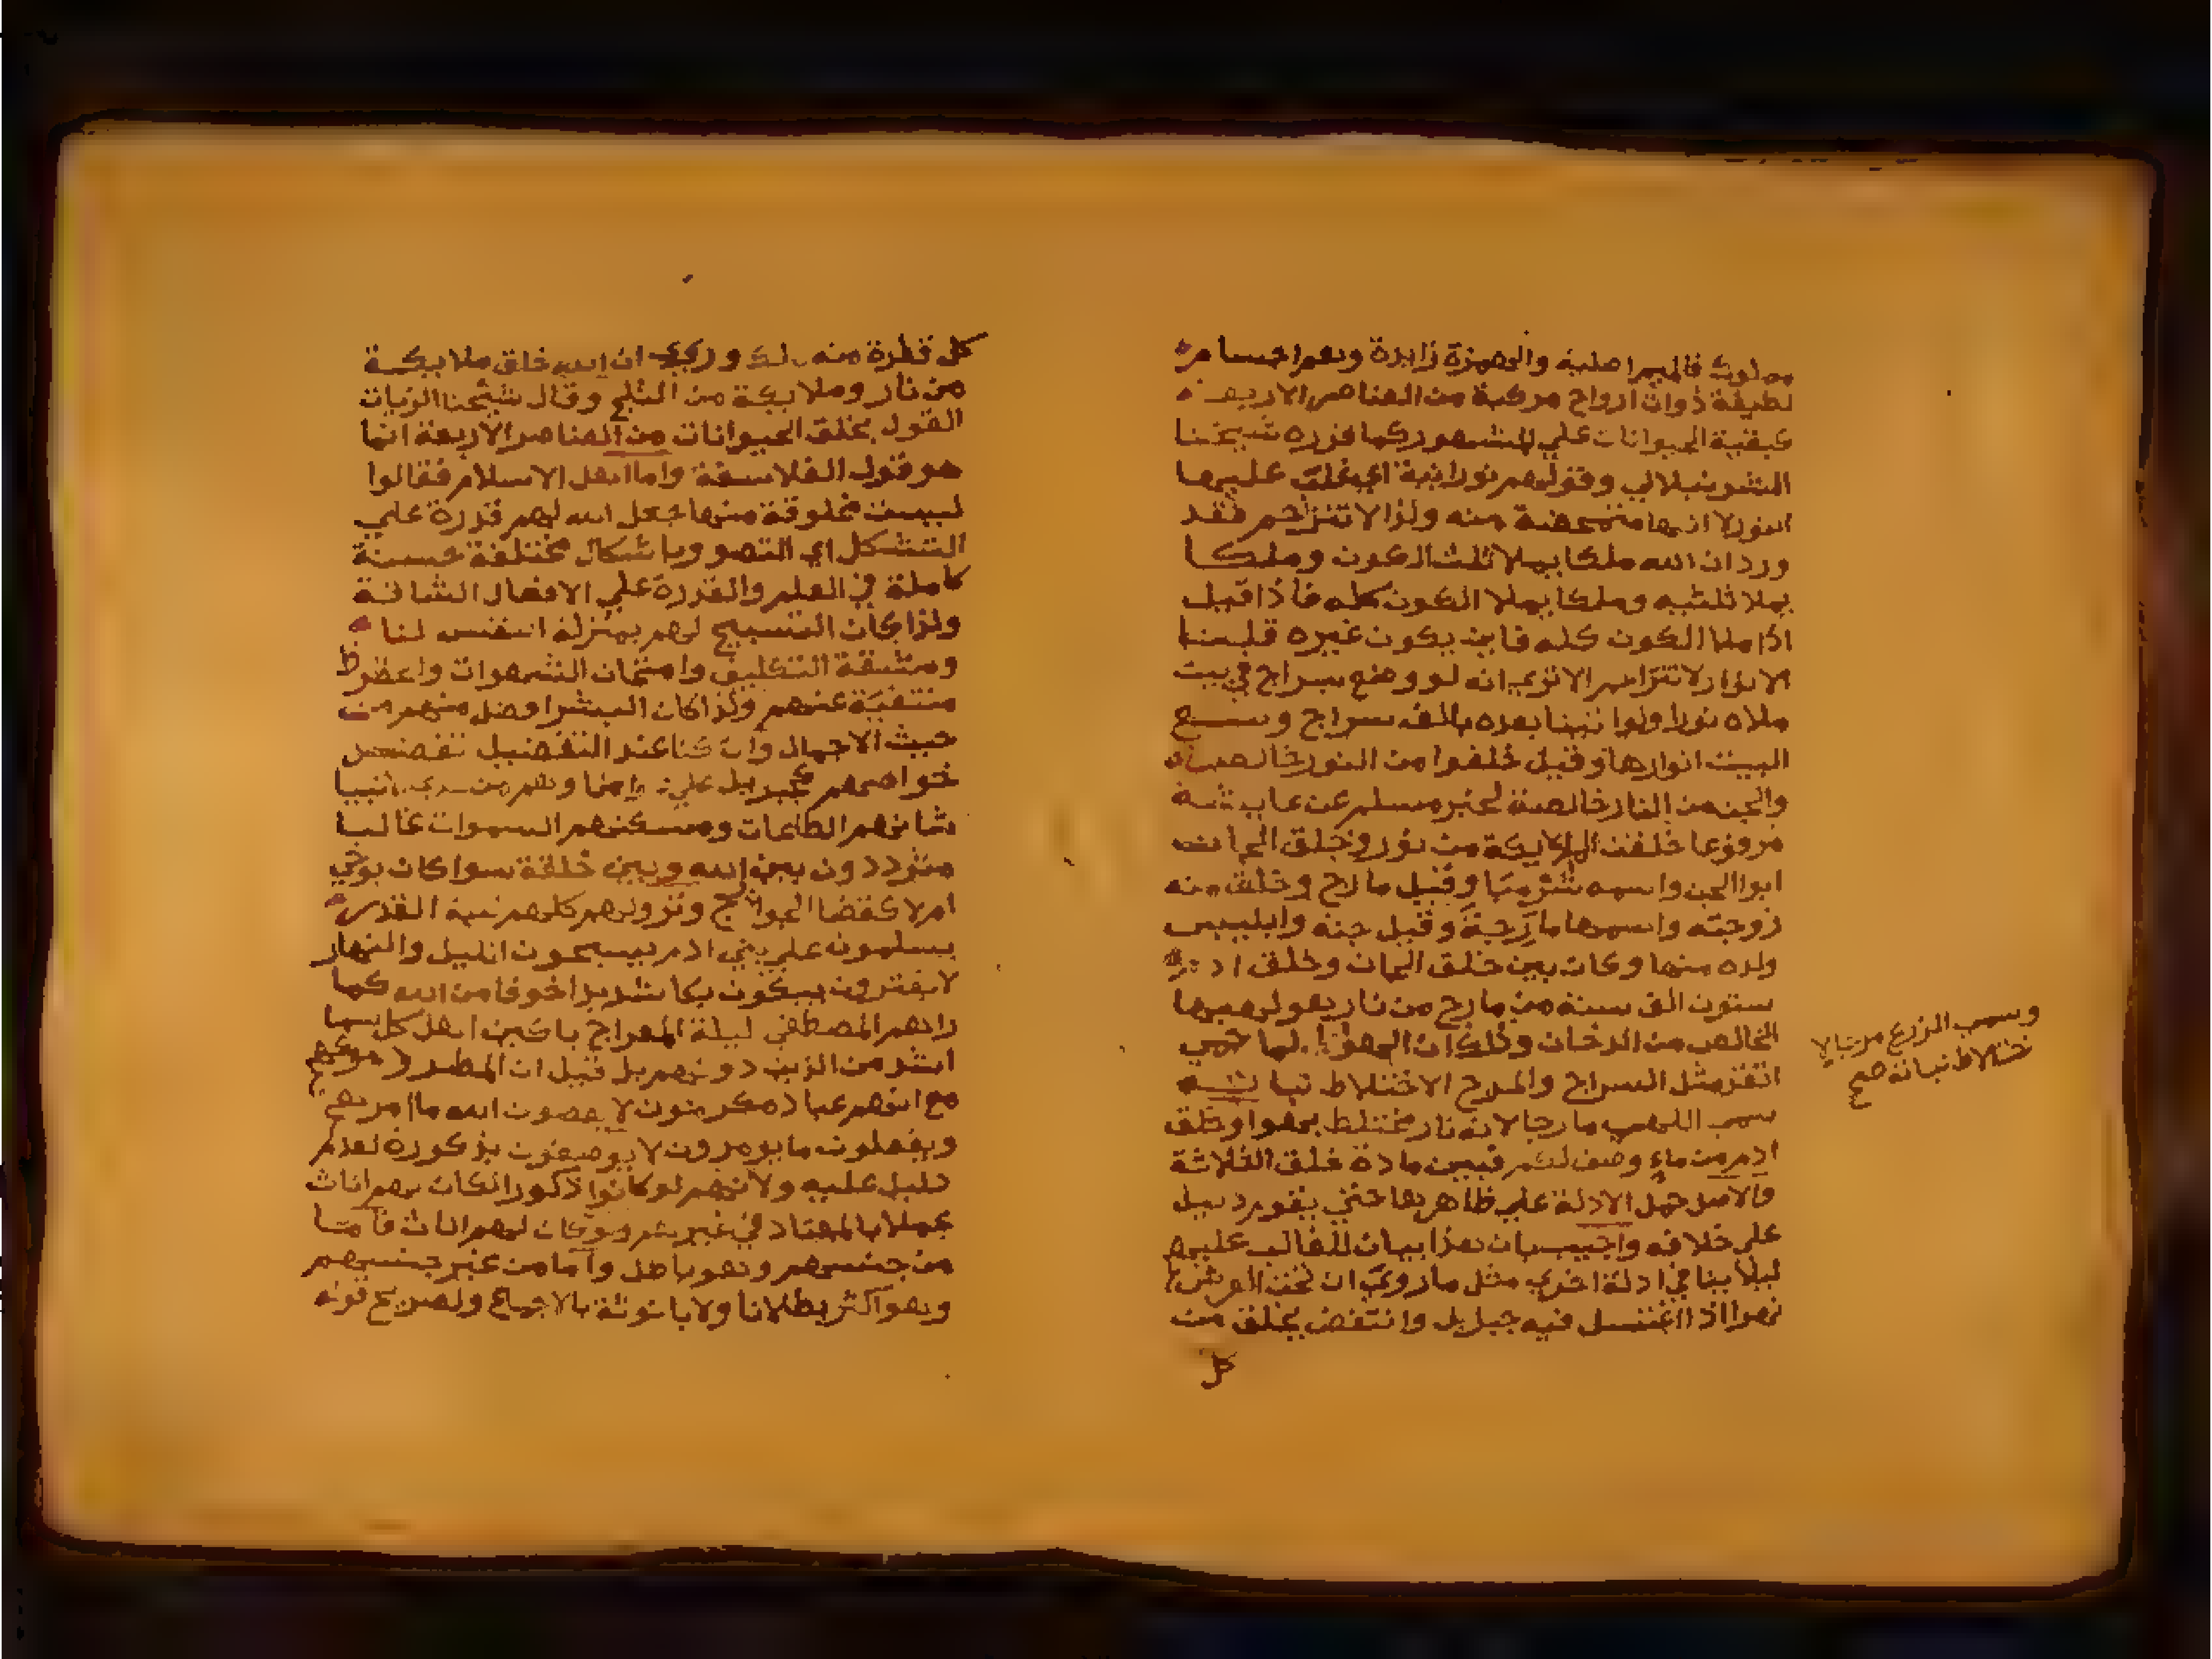 فالميم اصلية والهمزة زايدة وهم اجسام
لطيفة ذوات ارواح مركبة من العناصر الاربعة
كبقية الحيوانات علي المشهور كما قرره شيخنا
الشرنبلالي وقولهم نورانية اي يغلب عليها
النور لا انها متمحضة منه ولذا لا تتزاحم فقد
ورد ان الله ملكا يملا ثلث الكون وملكا
يملا ثلثيه وملكا يملا الكون كله فاذا قيل
اذا ملا الكون كله فاين يكون غيره قلنا
الانوار لا تتزاحم الا تري انه لو وضع سراج في بيت
ملاه نورا ولو اتينا بعده بالف سراج وسع
البيت انوارها وقيل خلقوا من النور خالصة
والجن من النار خالصة لخبر مسلم عن عايشة
مرفوعا خلقت الملايكة من نور وخلق الجان
ابوا الجن واسمه وقيل مارج وخلق منه
زوجته واسمها مارجة وقيل جنة وابليس
ولده منها وكان بين خلق الجان وخلق ادم
ستون الف سنة من مارج من نار هو لهبها
الخالص من الدخان وذلك ان الهوا لما حمي
اتقد مثل السراج والمرج الاختلاط
سمي اللهب مارجا لانه نار مختلط بهوا وخلق
ادم من ماء وصف لكم فبين مادة خلق الثلاثة
فالاصل حمل الادلة علي ظاهرها حتي يقوم دليل
علي خلافه واجيب بان هذا بيان للغالب عليهم
ليلا ينافي ادلة اخري مثل ما روي ان تحت العرش
نهرا اذا اغتسل فيه جبريل وانتفض يخلق من
كل
وسمي المزرع مرجا لا
ختلاط نباته صح
كل قطرة منه ملك وروي ان الله خلق ملايكة
من نار وملايكة من الثلج وقال شيخنا الزيات
القول بخلق الحيوانات من العناصر الاربعة انما
هو قول الفلاسفة واما اهل الاسلام فقالوا
ليست مخلوقة منها جعل الله لهم قدرة علي
التشكل اي التصور باشكال مختلفة حسنة
كاملة في العلم والقدرة علي الافعال الشاقة
ولذا كان التسبيح لهم بمنزلة النفس لنا
ومشقة التكليف وامتحان الشهوات
منتفية عنهم ولذا كان البشر افضل منهم من
حيث الاجمال وان كنا عند التفضيل نفضل
خواصهم كجبريل علي وهم من انبيا
شانهم الطاعات ومسكنهم السموات غالبا
مترددون بين الله وبين خلقة سوا كان بوحي
ام لا كقضا الحوايج ونزولهم كلهم ليلة القدر
يسلمون علي بني ادم يسبحون الليل والنهار
لا يفترون يبكون بكا شديدا خوفا من الله كما
راهم المصطفي ليلة المعراج باكين اهل كل سما
اشد من الذين دونهم بل قيل ان المطر دموعهم
مع انهم عباد مكرمون لا يعصون الله ما امرهم
ويفعلون ما يومرون لا يوصفون بذكورة لعدم
دليل عليه ولانهم لو كانوا ذكورا لكان لهم اناث
عملا بالمعتاد في غيرهم ولو كان لهم اناث فاما
من جنسهم وهو باطل واما من غير جنسهم
وهو اكثر بطلانا ولا بانوثة بالاجماع ولصريح قوله